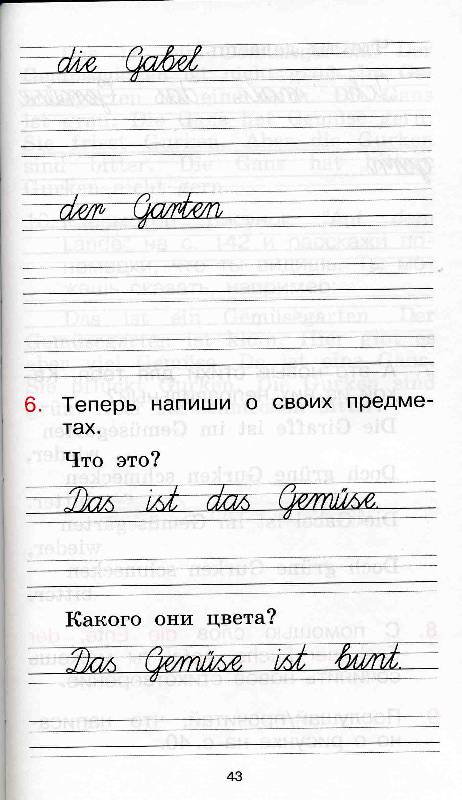 die Gabel
der Garten
6. Теперь напиши о своих предме-
тах.
Что это?
Das ist das Gemüse.
Какого они цвета?
Das Gemüse ist bunt.
43